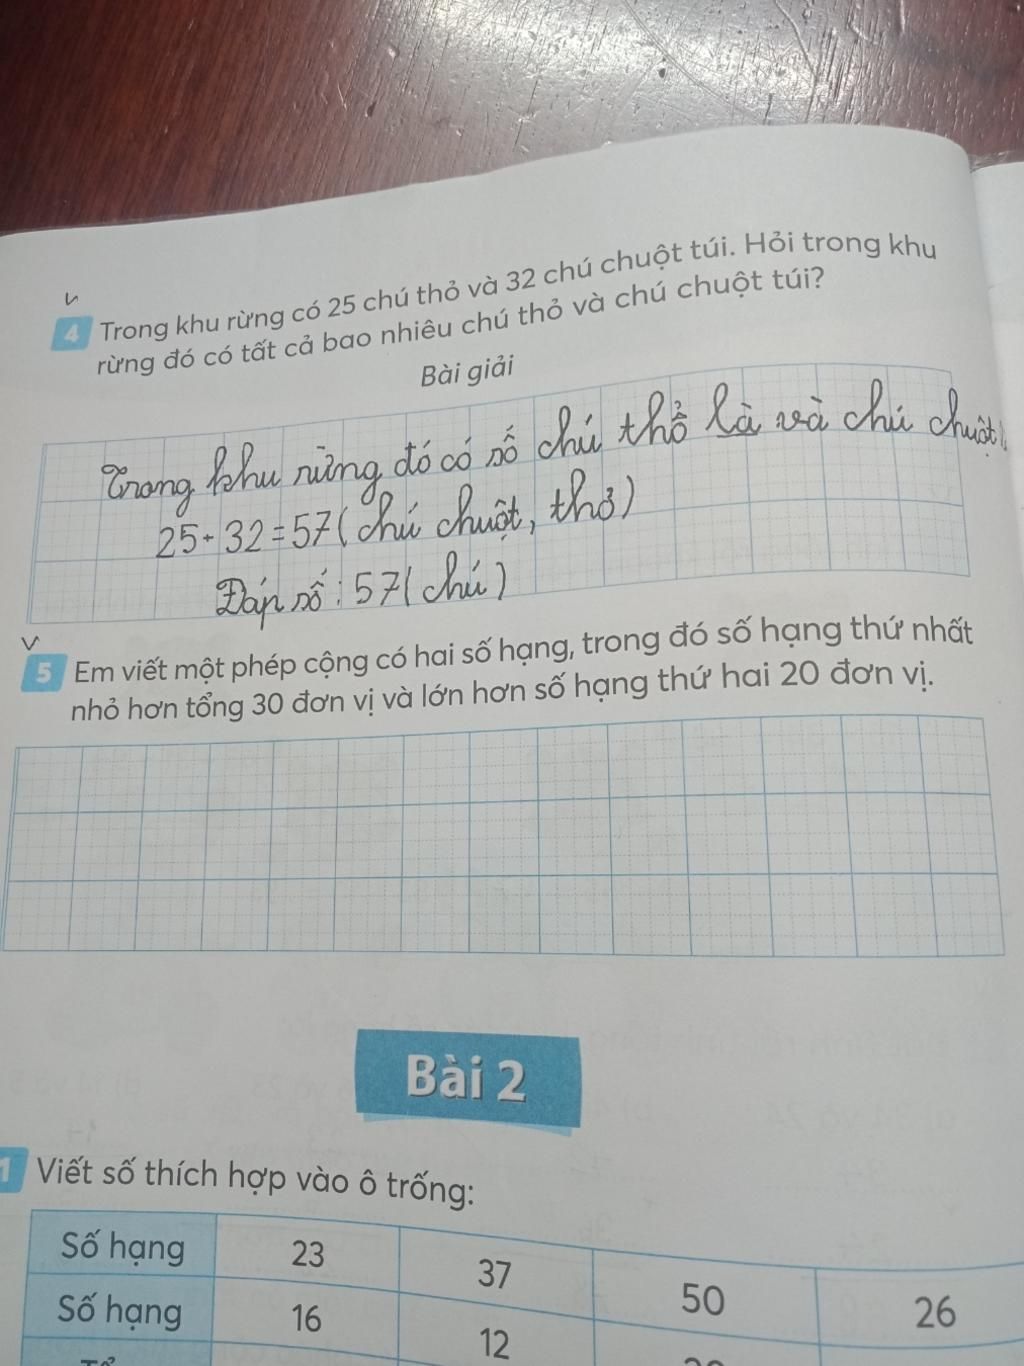 4 Trong khu rừng có 25 chú thỏ và 32 chú chuột túi. Hỏi trong khu
rừng đó có tất cả bao nhiêu chú thỏ và chú chuột túi?
Bài giải
Trong khu rừng đó có số chú thỏ là và chú chuột
25+32=57( chú chuột, thỏ)
Đáp số: 57( chú)
5 Em viết một phép cộng có hai số hạng, trong đó số hạng thứ nhất
nhỏ hơn tổng 30 đơn vị và lớn hơn số hạng thứ hai 20 đơn vị.
Bài 2
1 Viết số thích hợp vào ô trống:
Số hạng 23 37 50 26
Số hạng 16 12